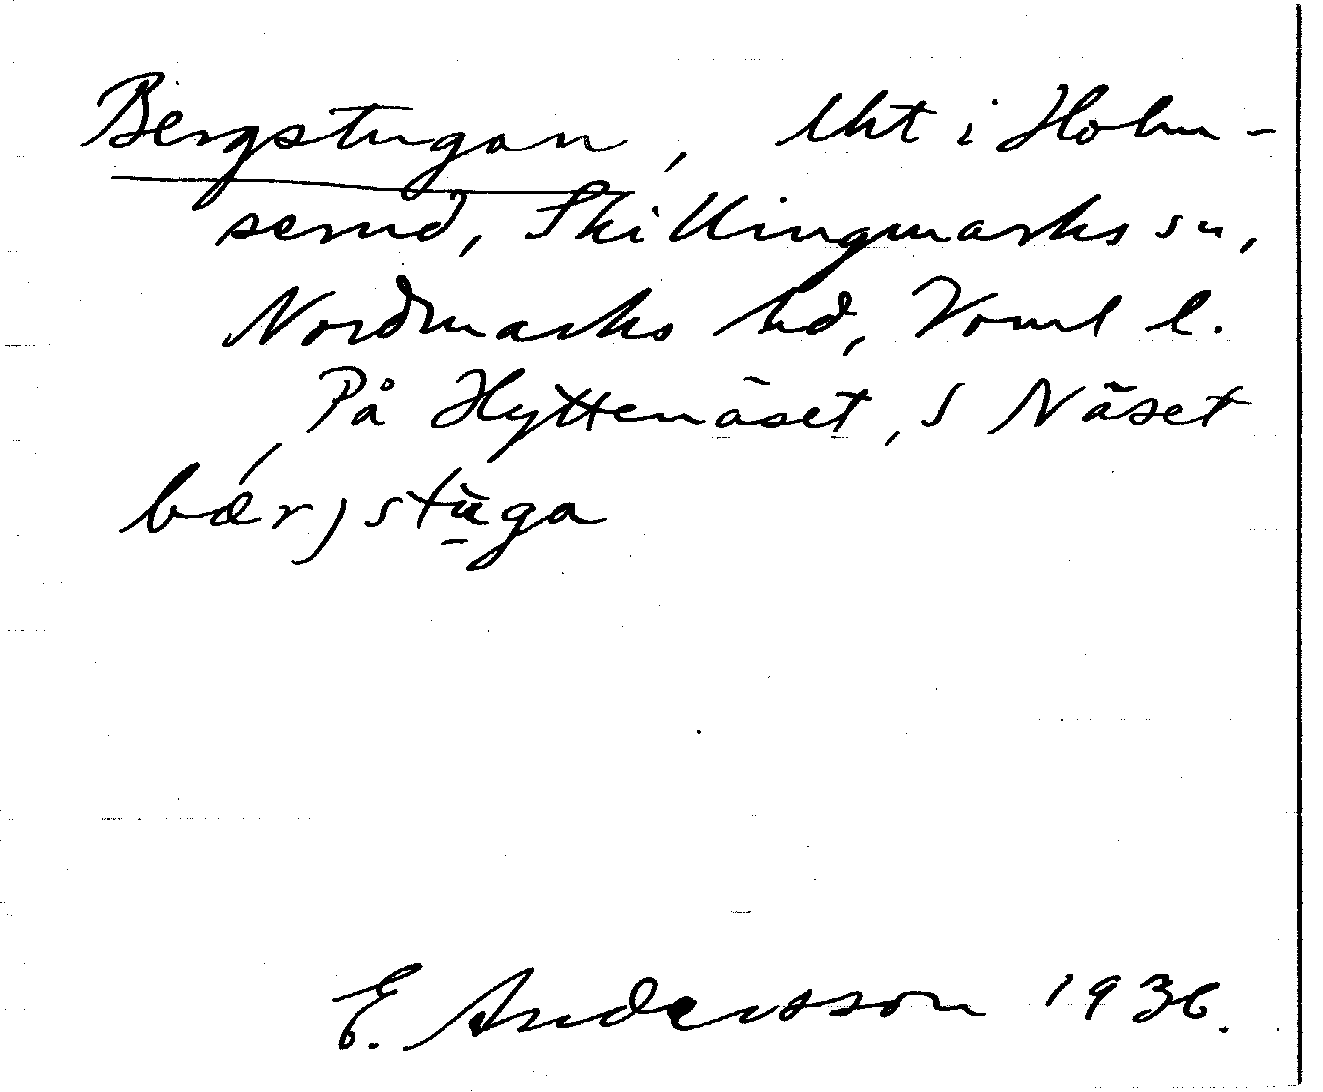 Bergstugan, lht i Holm-
serud, Skillingmarks sn,
Nordmarks hd, Vrml l.
På Hyttenäset, S Näset
bǽrjstùga
E. Andersson 1936.